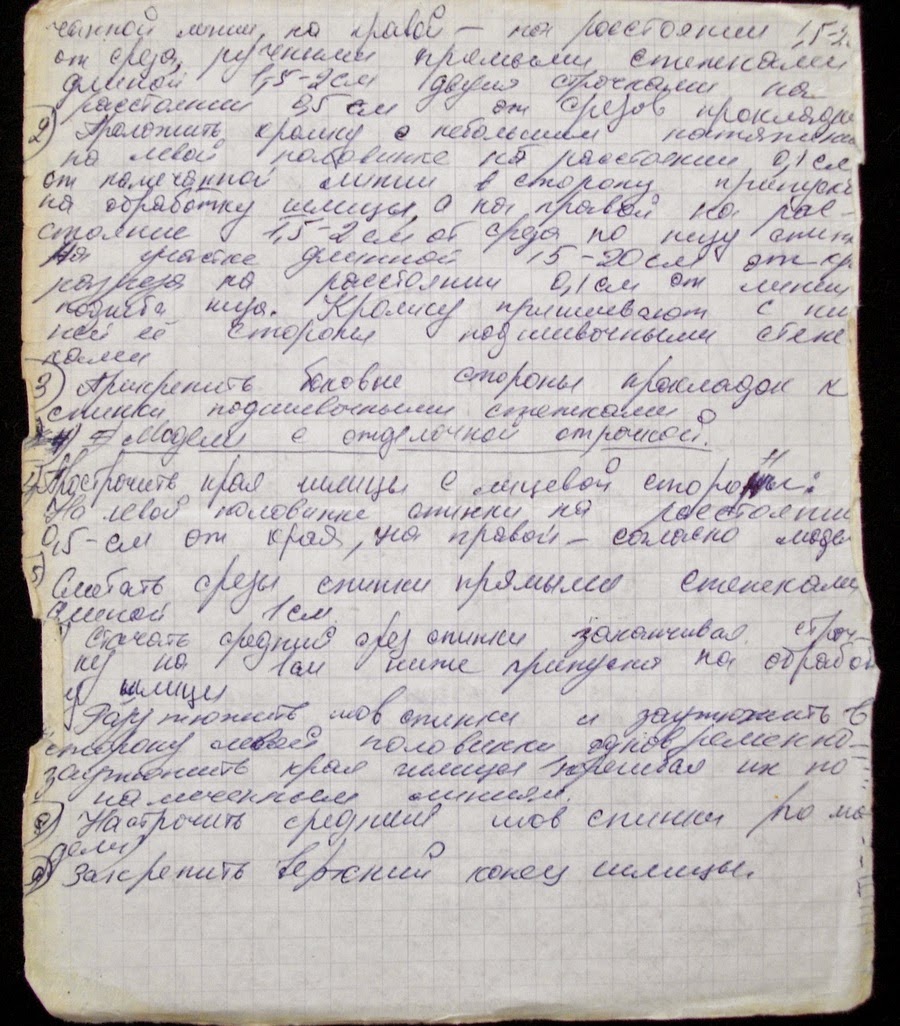 ченной линии, на правой – на расстоянии 1,5-2
от среза, ручными прямыми стежками
длиной 1,5-2см двумя строчками на
расстоянии 0,5 см от срезов прокладки
2) Проложить кромку с небольшим натяжени
на левой половинке на расстоянии 0,1 см
от намечанной линии в сторону припуск
на обработку шлицы, а на правой на рас-
стояние 1,5-2 см от среза по низу спин
На участке длинной 15-20см от кр
разреза на расстоянии 0,1 см от линии
подгиба низа. Кромку пришивают с
ней её стороны подшивочными стеж
ками
3) Прикрепить боковые стороны прокладок к
спинки подшивочными стежками
Модели с отделочной строчкой.
4) Прострочить края шлицы с лицевой стороны:
На левой половинке спинки на расстоянии
0,5-см от края, на правой – согласно моде
5)
Сметать срезы спинки прямыми стежками
длиной 1 см.
Стачать средний срез спинки заканчивая строч-
ку на 1см ниже припуска на обработ
шлицы
Разутюжить шов спинки и заутюжить в
сторону левой половинки одновременно
заутюжить края шлицы, их по
намеченным линиям.
8) Настрочить средний шов спинки по мо
дели
9) Закрепить верхний конец шлицы.